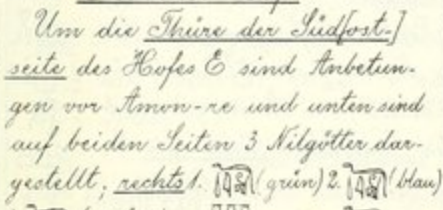 Um die Thüre der Süd[ost-]
seite des Hofes E sind Anbetun-
gen vor Amon-re und unten sind
auf beiden Seiten 3 Nilgötter dar-
gestellt; rechts 1. (grün) 2. (blau)